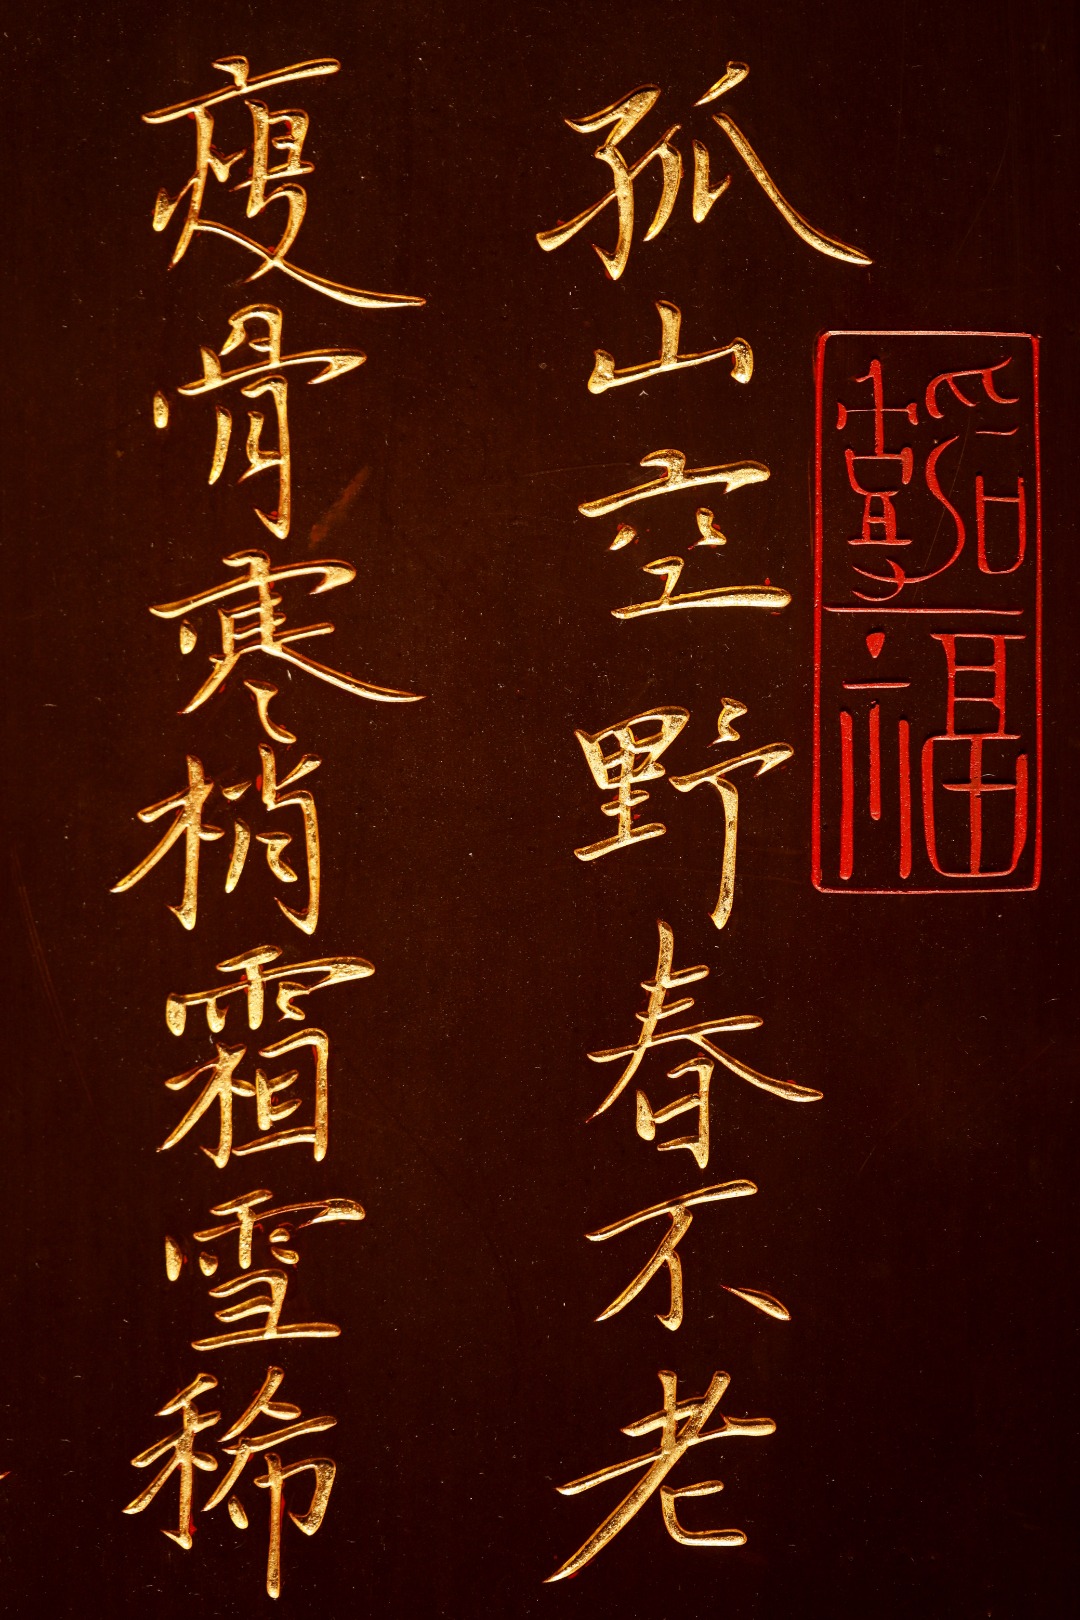 孤山空野春不老
瘦骨寒梢霜雪稀